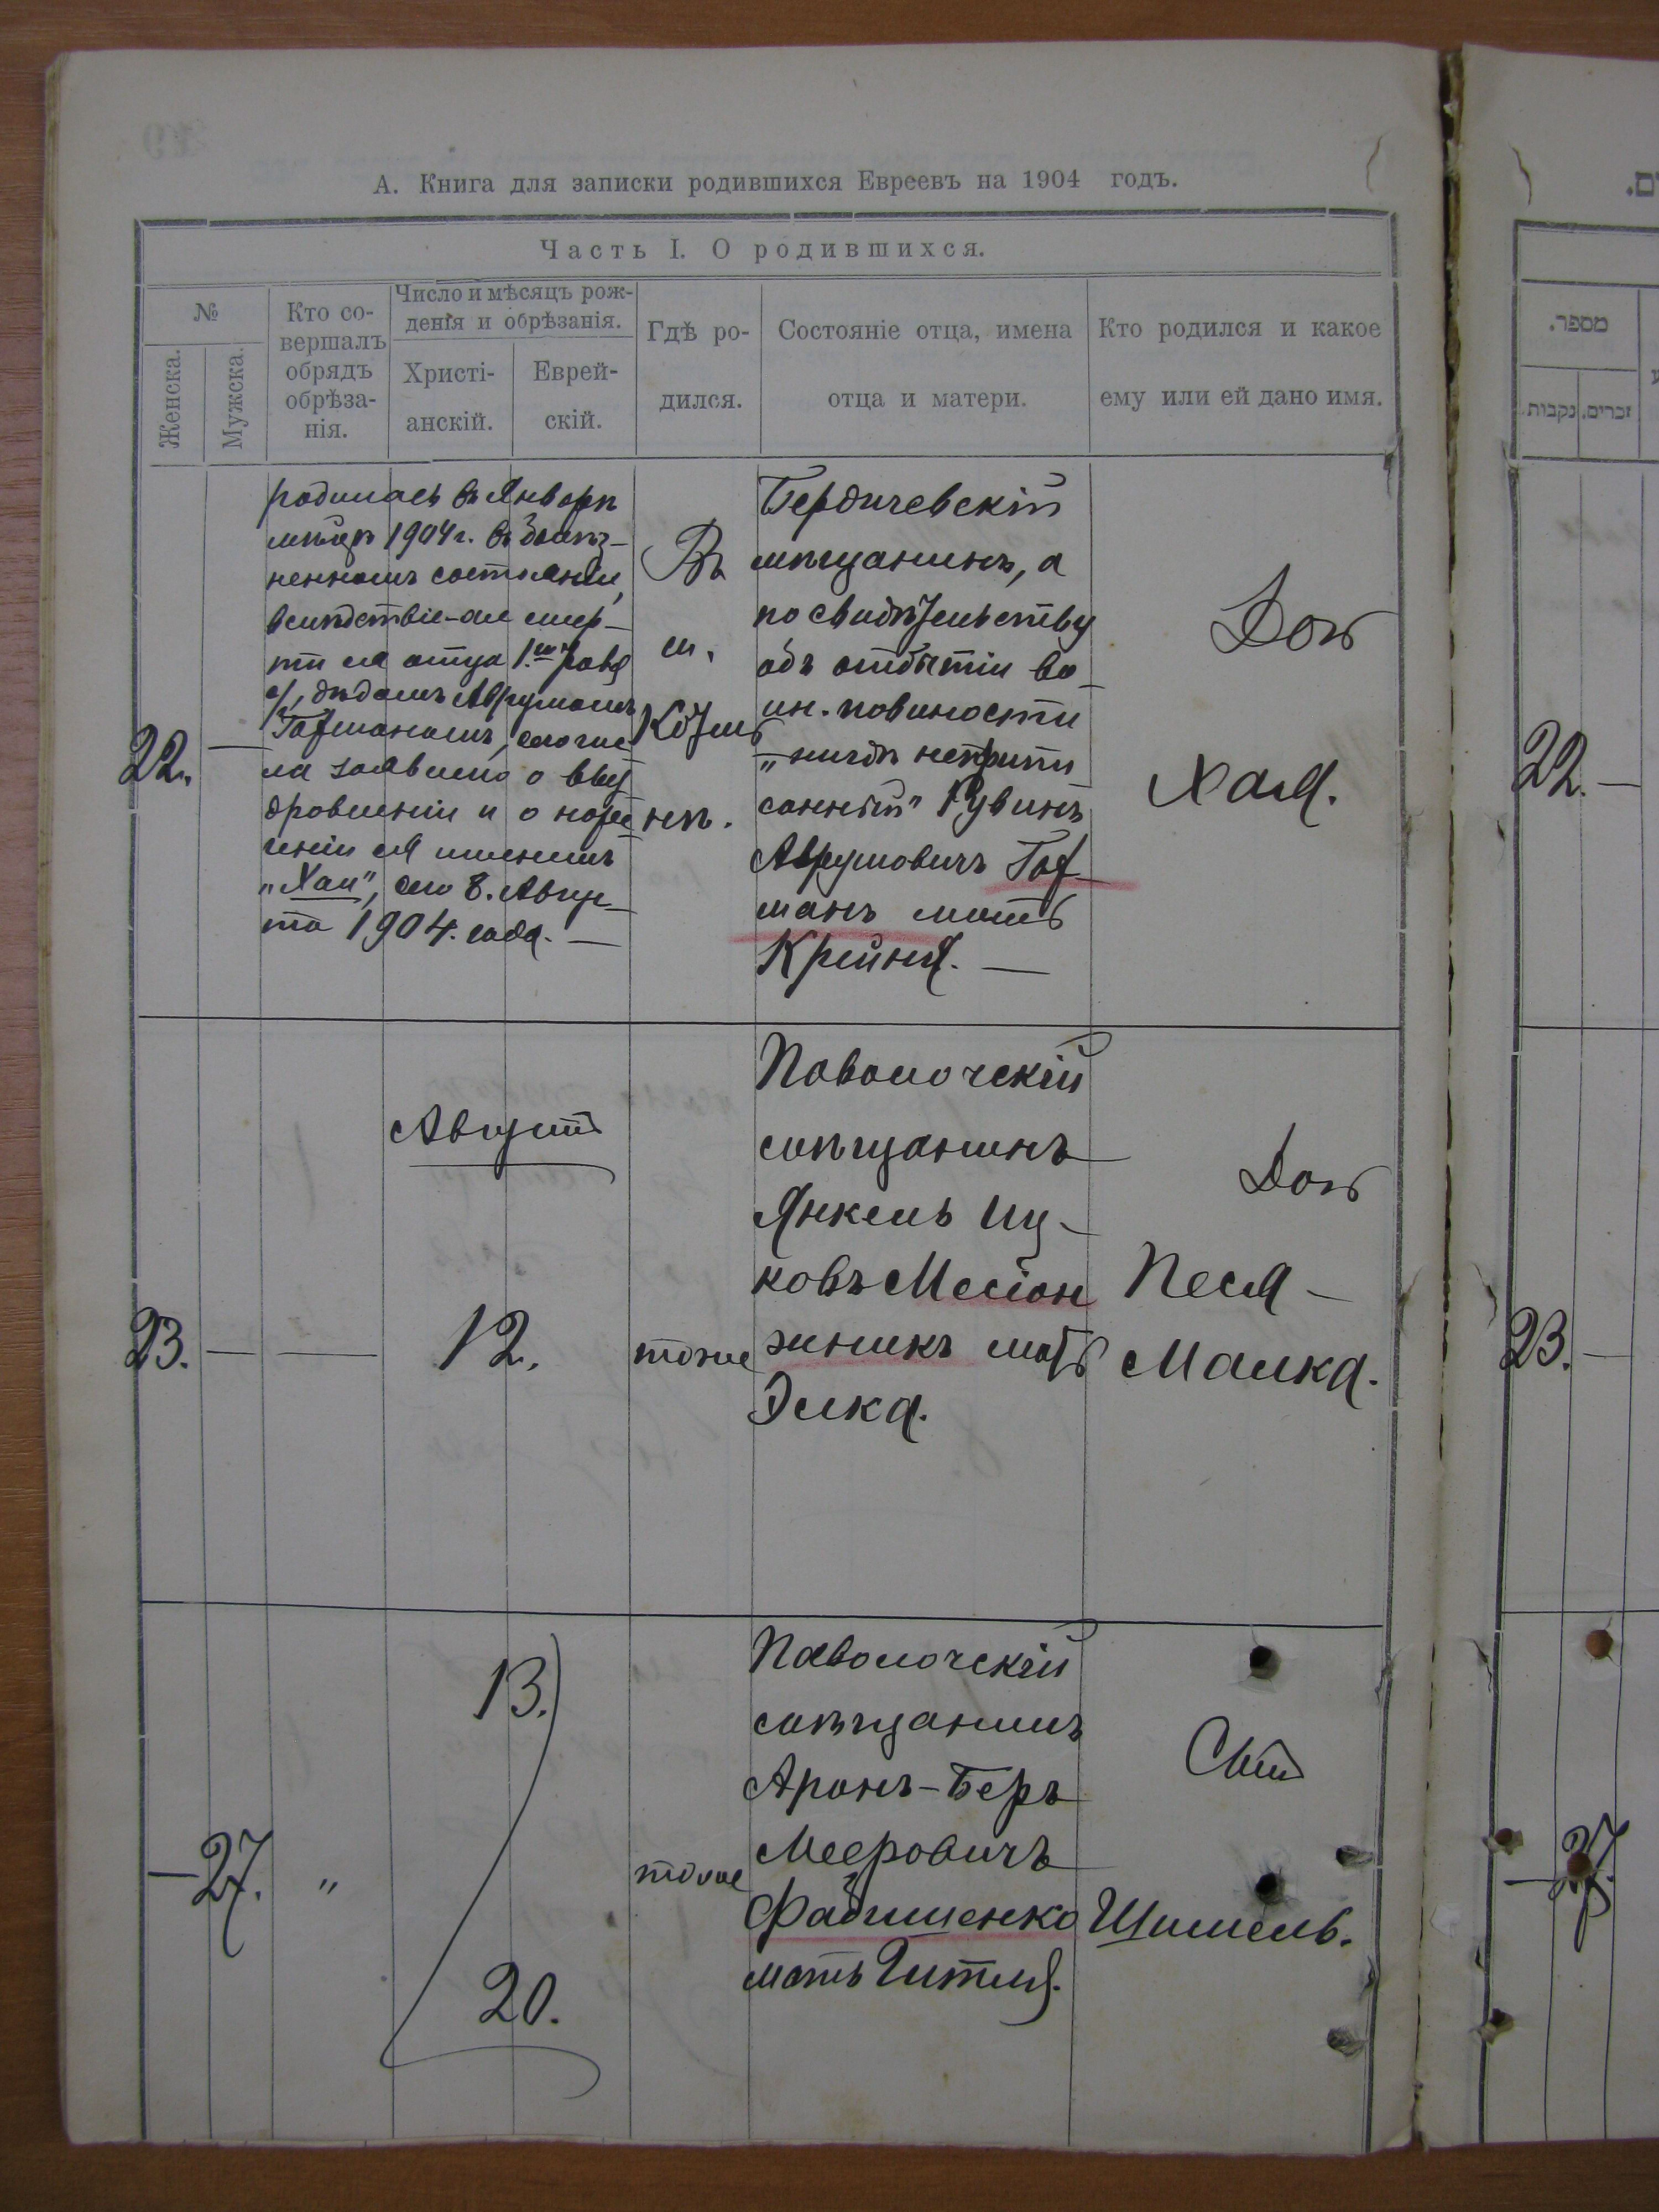 А. Книга для записки родившихся Евреевъ на 1904 годъ.
Часть I. О родившихся.
№
Женска.
Мужска.
Кто со-
вершалъ
обрядъ
обрѣза-
нія.
Число и мѣсяцъ рож-
денія и обрѣзанія.
Христі-
анскій.
Еврей-
скій.
Гдѣ ро-
дился.
Состояніе отца, имена
отца и матери.
Кто родился и какое
ему или ей дано имя.
22.
—
родилась въ Январѣ
мѣсяцѣ 1904 г. въ болѣз-
ненномъ состояніи,
вслѣдствіе
ти ея отца
дѣдомъ Аврумомъ
Гофманомъ,
ла заявлено о
дровленіи и о наре
ченіи ея именемъ
„Хая", сего 8. Авгус
та 1904. года. —
Въ
м.
нѣ.
Бердичевскій
мѣщанинъ, а
по свидѣтельству
объ отбытіи во
ин. повиности
„нигдѣ неприпи
санный" Рувинъ
Аврумовичъ Гоф
манъ мать
Крейня. —
Дочь
Хая.
23.
— —
Августъ
12.
тоже
Паволочскій
мѣщанинъ
Янкель Иц-
ковъ Месіон
зникъ мать
Элка.
Дочь
Песя —
Малка.
— 27.
„
13.)
20.
тоже
Паволочскій
мѣщанинъ
Аронъ-Беръ
Мееровичъ
Фабишенко
мать Гитля.
Сынъ
Шимель.
ם.
מספר.
נקבות
זכרים.
22. —
23. —
— 27.